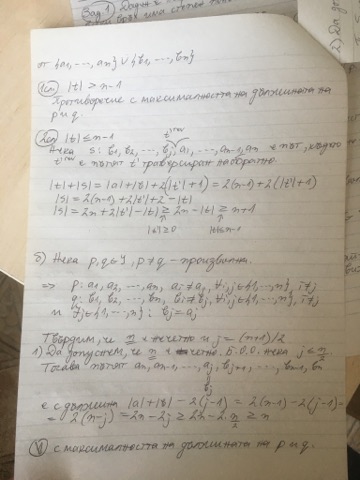 от {a1, ---, an} ∪ {b1, ---, bn}
1сл) |t| > n-1
Противоречие с максималността на дължината на
p и q.
2сл) |t| ≤ n-1
Нека s: b1, b2, ---, bj, a1, ---, an-1, an е път, където
е пътят t' траверсиран наобратно
|t|+|s| = |a|+|b|+2(|t'|+1) = 2(n-1)+2(|t'|+1)
|s| = 2(n-1)+2|t'|+2-|t|
|s| = 2n+2|t'|-|t| ≥ 2n-|t| ≥ n+1
|t'|≥0 |t|≤n-1
б) Нека p, q ∈ Y, p ≠ q - произволни.
=> p: a1, a2, ---, an, ai ≠ aj, ∀i,j∈{1, ---, n}, i≠j
q: b1, b2, ---, bn, bi ≠ bj, ∀i,j∈{1, ---, n}, i≠j
и ∃j∈{1, ---, n}: bj = aj
Твърдим, че n е нечетно и j = (n+1)/2
1) Да допуснем, че n е четно. Б.О.О. нека j ≤ n/2
Тогава пътят an, an-1, ---, aj, bj+1, ---, bn-1, bn
bj
е с дължина |a|+|b|-2(j-1) = 2(n-1)-2(j-1)=
= 2(n-j) = 2n-2j ≥ 2n-2.n/2 ≥ n
с максималността на дължината на p и q.